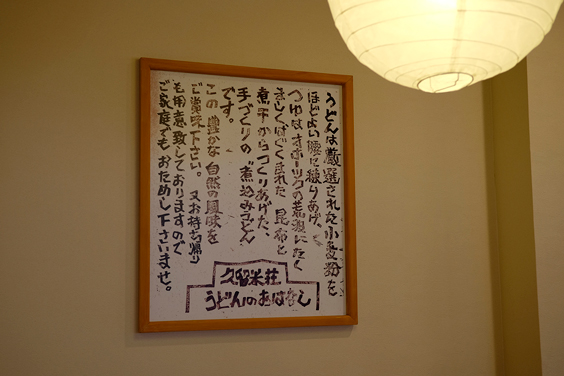 うどんは厳選された小麦粉を
ほどよい腰に練りあげ、
つゆはオホーツクの荒波にたく
ましくはぐくまれた昆布と
煮干からつくりあげた、
手づくりの煮込みうどん
です。
この豊かな自然の風味を
ご賞味下さい。又お持ち帰り
も用意致しておりますので
ご家庭でもおためし下さいませ。
久留米荘
うどんのおはなし